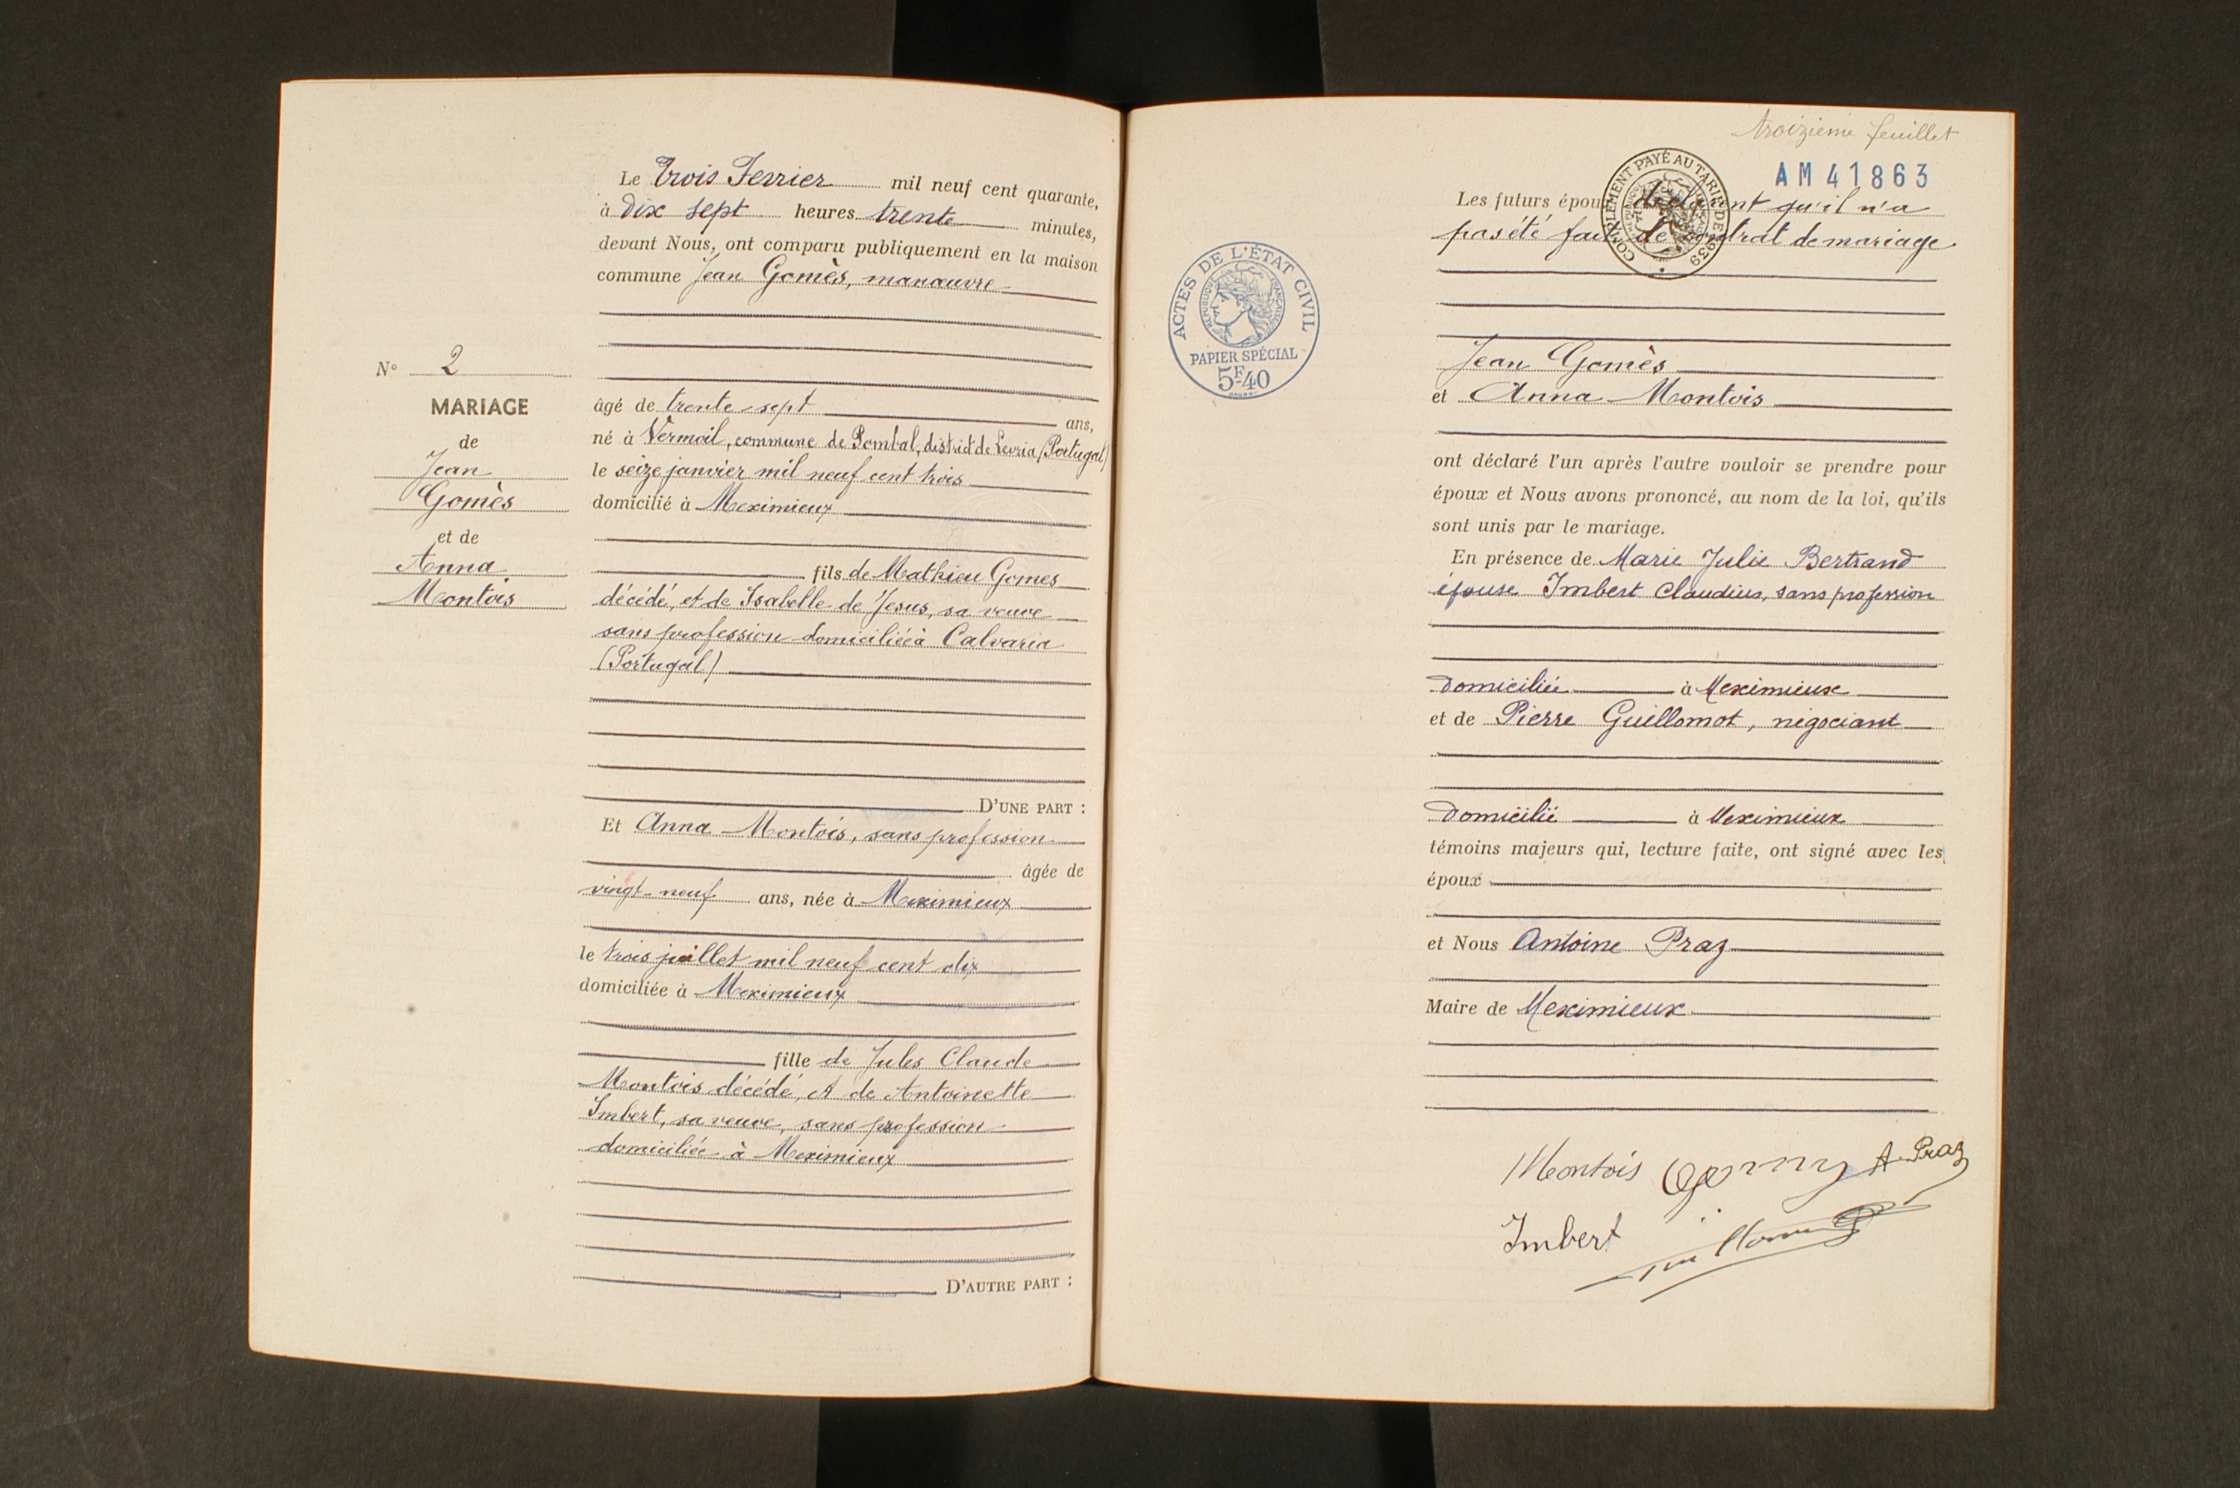 Le trois Fevrier mil neuf cent quarante,
à dix sept heures trente minutes,
devant Nous, ont comparu publiquement en la maison
commune Jean Gomès, manœuvre
N° 2
MARIAGE
de
Jean
Gomès
et de
Anna
Montois
âgé de trente-sept ans,
né à Vermoil, commune de Pombal, district de Levria (Portugal)
le seize janvier mil neuf cent trois
domicilié à Meximieux
fils de Mathieu Gomes
décédé, et de Isabelle de Jesus, sa veuve
sans profession domiciliée à Calvaria
(Portugal)
D'UNE PART :
Et Anna Montois, sans profession
âgée de
vingt-neuf ans, née à Meximieux
le trois juillet mil neuf cent dix
domiciliée à Meximieux
fille de Jules Claude
Montois décédé, et de Antoinette
Imbert, sa veuve, sans profession
domiciliée à Meximieux
D'AUTRE PART :
troizieme feuillet
AM 41863
COMPLEMENT PAYÉ AU TARIF DE 1939
ACTES DE L'ÉTAT CIVIL
RÉPUBLIQUE FRANÇAISE
PAPIER SPÉCIAL
5F40
Les futurs époux déclarent qu'il n'a
pas été fait de contrat de mariage
Jean Gomès
et Anna Montois
ont déclaré l'un après l'autre vouloir se prendre pour
époux et Nous avons prononcé, au nom de la loi, qu'ils
sont unis par le mariage.
En présence de Marie Julie Bertrand
épouse Imbert Claudius, sans profession
domiciliée à Meximieux
et de Pierre Guillomot, négociant
domicilié à Meximieux
témoins majeurs qui, lecture faite, ont signé avec les
époux
et Nous Antoine Praz
Maire de Meximieux
Montois A. Praz
Imbert